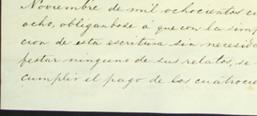 Noviembre de mil ochocientos
ocho, obligandose á que con la sim
cion de esta escritura sin necesida
festar ninguno de sus relatos, se
cumplir el pago de las cuatrocie